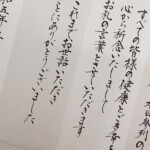 本日参列の
すべての皆様の健康とご多幸を
心から祈念いたしまして
お礼の言葉とさせていただきます
これまでお世話いただき
まことにありがとうございました